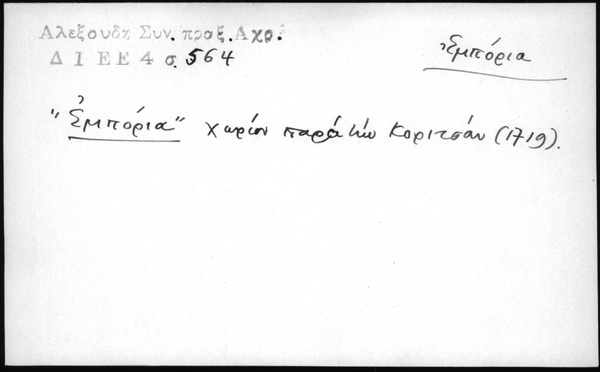 Αλεξουδη Συν. προξ. Αχρ.
Δ 1 ΕΕ 4 σ. 564
Ἐμπόρια
"Ἐμπόρια" χωρίον παρὰ τὴν Κοριτσάν (1719).